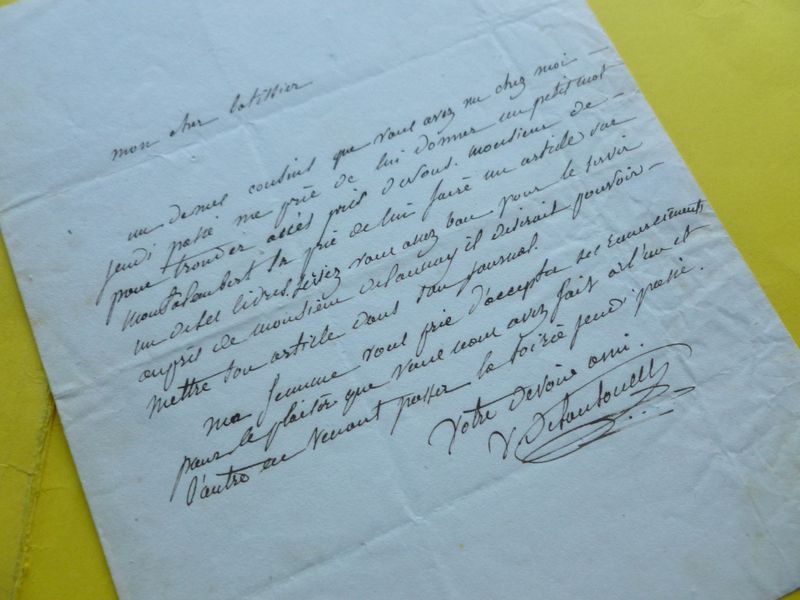 mon cher
un de mes cousins que vous avez vu chez moi
jeudi passé me prie de lui donner un petit mot
pour trouver accés près de vous. monsieur de
Montalembert la prié de lui faire un article sur
un de ses livres. seriez vous assez bon pour le servir
auprès de monsieur delaunay il desirait pouvoir
mettre son article dans son journal.
ma femme vous prie d'accepter ses remerciements
pour le plaisir que vous nous avez fait a l'un et
l'autre en venant passer la soirée jeudi passé.
Votre devoué ami.